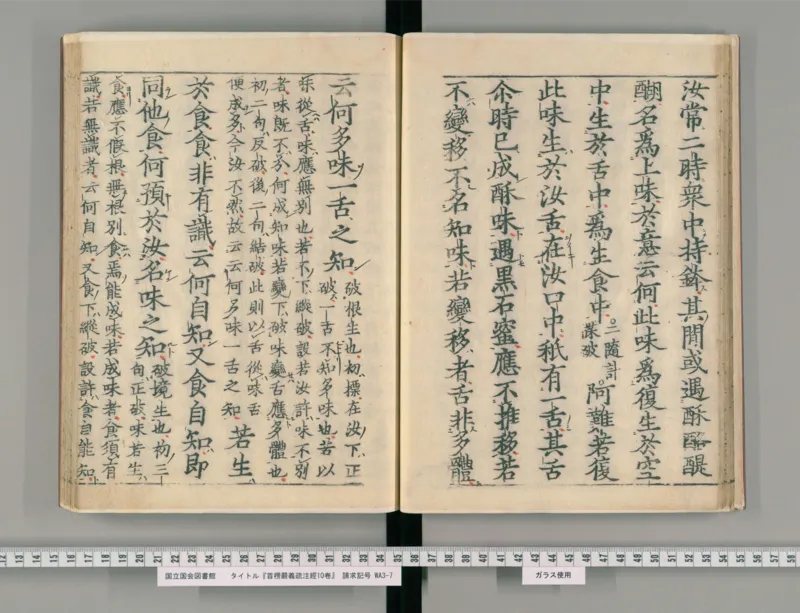 汝常二時衆中持鉢其間或遇酥酪醍
醐名爲上味於意云何此味爲復生於空
中生於舌中爲生食中二隨計蹀破阿難若復
此味生於汝舌在汝口中秖有一舌其舌
尒時已成酥味遇黒石蜜應不推移若
不變移不名知味若變移者舌非多體
云何多味一舌之知破根生也初標在汝下正
破一舌不知多味也若以
味從舌味應無別也若不下縱破設若汝許味不別
者味既不分何成知味若變下破味變舌應多體也
初二句反破後二句結破此則以舌從味舌
便成多今汝不然故云云何多味一舌之知若生
於食食非有識云何自知又食自知即
同他食何預於汝名味之知破境生也初三
句正破味若生
食應不假根無根別食焉能成味若成味者食須有
識若無識者云何自知又食下縱破設許食自能知
12 13 14 15 16 17 18 19 20 21 22 23 24 25 26 27 28 29 30 31 32 33 34 35 36 37 38 39 40 41 42 43 44 45 46 47 48 49 50 51 52 53 54 55 56 57 58
国立国会図書館 タイトル『首楞嚴義疏注經10巻』 請求記号 WA3-7
ガラス使用